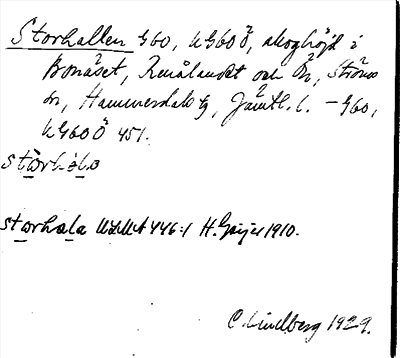 Storhallen G60, UG60Ö, skoghöjd i
Bonäset, Renålandet och Ön, Ströms
sn, Hammerdals tg, Jämtl. l. – G60,
UG60Ö 451.
storhala ULMA 446:1 H. Geijer 1910.
C. Lindberg 1929.